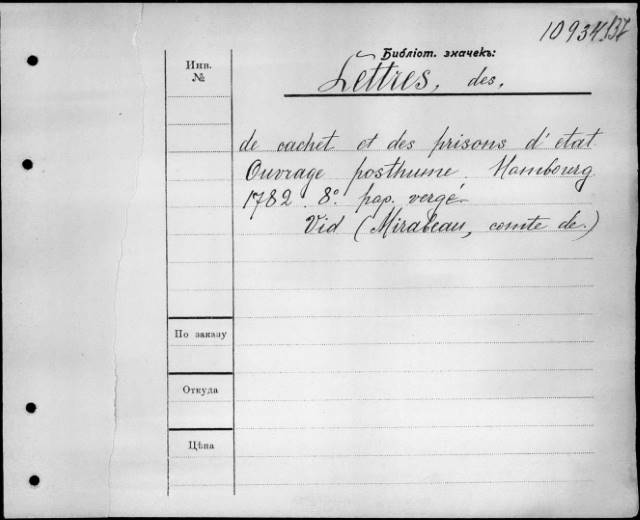 10934.137
Библіот. значекъ:
Инв.
№
Lettres, des,
de cachet et des prisons d'etat
Ouvrage posthume. Hambourg
1782. 8º. pap. vergé
Vid (Mirabeau, comte de.)
По заказу
Откуда
Цѣна